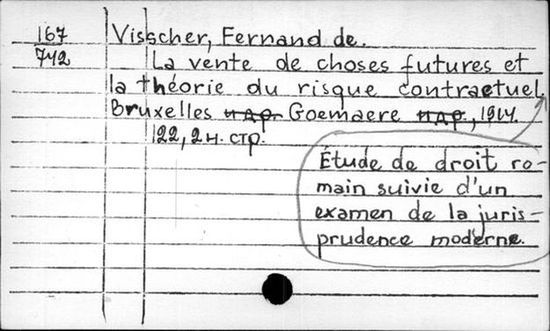 167
742
Visscher, Fernand de.
La vente de choses futures et
la théorie du risque contractuel.
Bruxelles и др. Goemaere и др., 1914.
122, 2 н. стр.
Étude de droit ro-
main suivie d'un
examen de la juris-
prudence moderne.